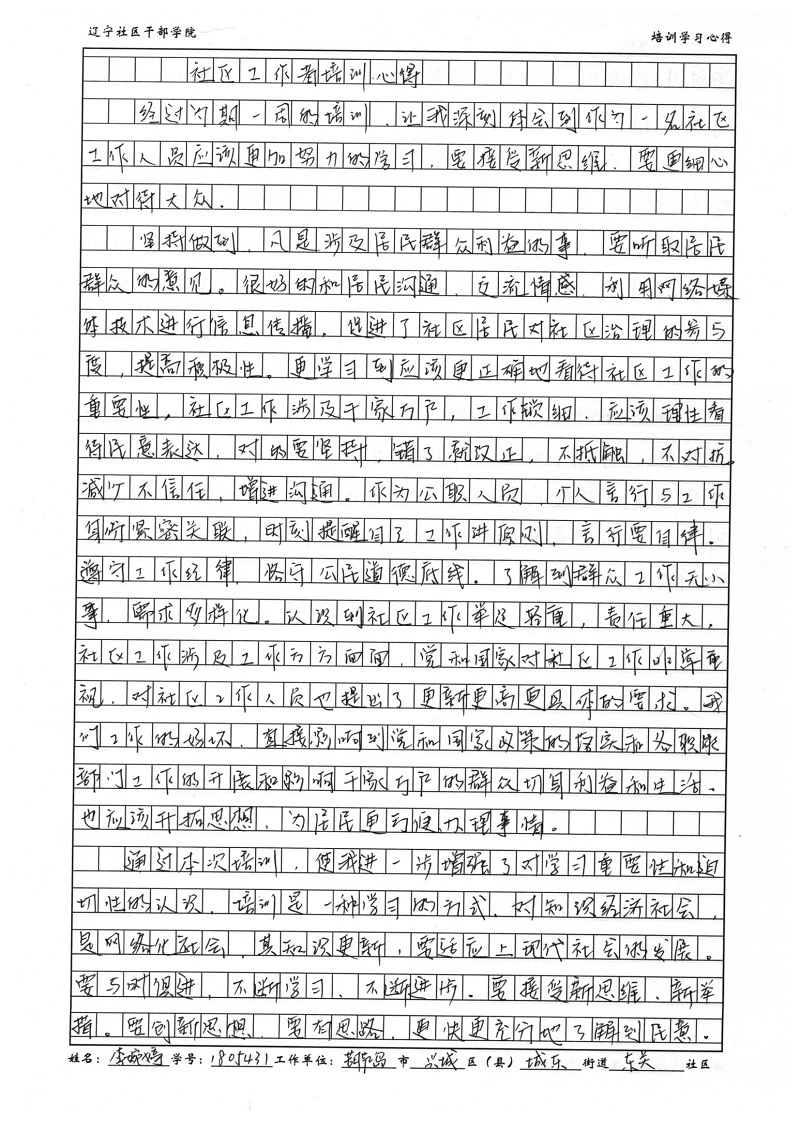 辽宁社区干部学院 培训学习心得
社区工作者培训心得
经过为期一周的培训，让我深刻体会到作为一名社区
工作人员应该更加努力的学习，要接受新思维，要更细心
地对待大众．
坚持做到，凡是涉及居民群众利益的事，要听取居民
群众的意见。很好的和居民沟通，交流情感，利用网络媒
体技术进行信息传播，促进了社区居民对社区治理的参与
度，提高积极性。更学习到应该更正确地看待社区工作的
重要性，社区工作涉及千家万户，工作琐细，应该理性看
待民意表达，对的要坚持，错了就改正，不抵触，不对抗。
减少不信任，增进沟通。作为公职人员，个人言行与工作
息息紧密关联，时刻提醒自己工作，言行要自律。
遵守工作纪律，恪守公民道德底线。了解到群众工作无小
事，需求多样化。认识到社区工作举足轻重，责任重大，
社区工作涉及工作方方面面，党和国家对社区工作非常重
视，对社区工作人员也提出了更新更高更具体的要求。我
们工作的好坏，直接影响到党和国家政策的落实和各职能
部门工作的开展和影响千家万户的群众切身利益和生活、
也应该开拓思想，为居民更方便办理事情。
通过本次培训，使我进一步增强了对学习重要性和迫
切性的认识，培训是一种学习的方式，对知识经济社会，
是网络化社会，其知识更新，要适应上现代社会的发展。
要与时俱进，不断学习、不断进步。要接受新思维、新举
措。要创新思想，要有思路，更快更充分地了解到民意。
姓名：李婉婷 学号：1805431 工作单位：葫芦岛 市 兴城 区（县） 城东 街道 东关 社区